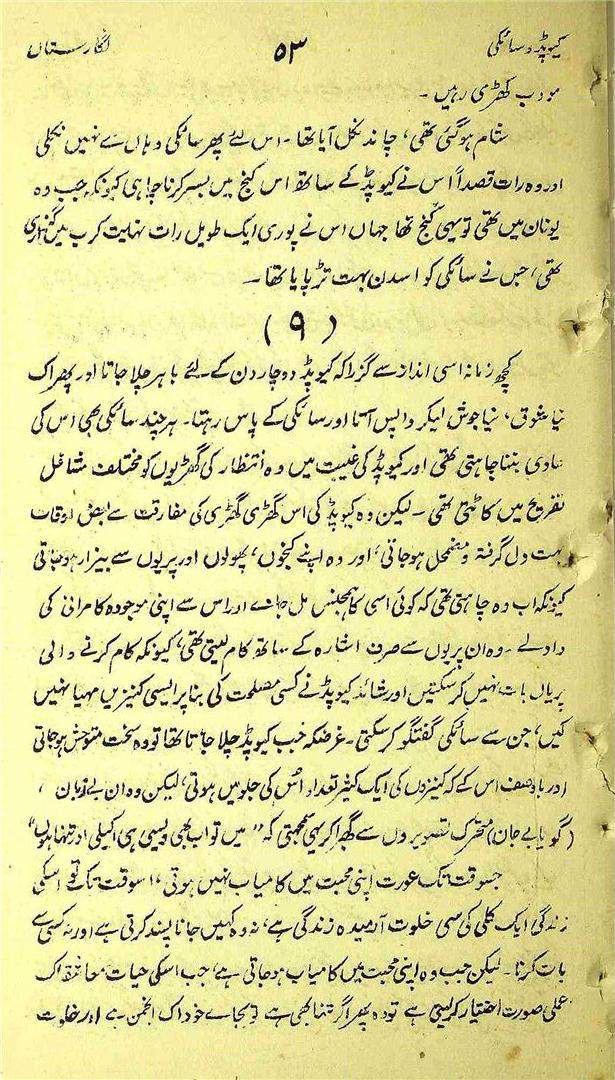 کیوپڈ و سائکی ۵۳ نگارستاں
مودب کھڑی رہیں ۔
شام ہوگئی تھی، چاند نکل آیا تھا ۔ اس لئے پھر سائکی وہاں سے نہیں نکلی
اور وہ رات قصداً اس نے کیوپڈ کے ساتھ اس کنج میں بسر کرنا چاہی کیونکہ جب وہ
یونان میں تھی تو یہی کنج تھا جہاں اس نے پوری ایک طویل رات نہایت کرب میں گزاری
تھی، جس نے سائکی کو اسدن بہت تڑپایا تھا ۔
(۹)
کچھ زمانہ اسی انداز سے گزرا کہ کیوپڈ دو چار دن کے لئے باہر چلا جاتا اور پھر اک
نیا شوق، نیا جوش لیکر واپس آتا اور سائکی کے پاس رہتا۔ ہر چند سائکی بھی اس کی
عادی بننا چاہتی تھی اور کیوپڈ کی غیبت میں وہ انتظار کی گھڑیوں کو مختلف مشاغل
تفریح میں کاٹتی تھی ۔ لیکن وہ کیوپڈ کی اس گھڑی گھڑی کی مفارقت سے بعض اوقات
بہت دل گرفتہ و مضمحل ہوجاتی، اور وہ اپنے کنجوں، پھولوں اور پریوں سے بیزار ہوجاتی
کیونکہ اب وہ چاہتی تھی کہ کوئی اسی کا ہمجنس مل جائے اور اس سے اپنی موجودہ کامرانی کی
داد لے ۔ وہ ان پریوں سے صرف اشارہ کے ساتھ کام لیتی تھی، کیونکہ کام کرنے والی
پریاں بات نہیں کرسکتیں اور شائد کیوپڈ نے کسی مصلحت کی بنا پر ایسی کنیزیں مہیا نہیں
کیں، جن سے سائکی گفتگو کرسکتی ۔ غرضکہ جب کیوپڈ چلا جاتا تھا تو وہ سخت متوحش ہوجاتی
اور باوصف اس کے کہ کنیزوں کی ایک کثیر تعداد اس کی جلو میں ہوتی، لیکن وہ ان بے زبان ،
(گویا بے جان) متحرک تصویروں سے گھبرا کر یہی سمجھتی کہ ”میں تو اب بھی ویسی ہی اکیلی اور تنہا ہوں“
جسوقت تک عورت اپنی محبت میں کامیاب نہیں ہوتی، اسوقت تک تو اسکی
زندگی ایک کلی کی سی خلوت آرمیدہ زندگی ہے، نہ وہ کہیں جانا پسند کرتی ہے اور نہ کسی سے
بات کرنا ۔ لیکن جب وہ اپنی محبت میں کامیاب ہوجاتی ہے، جب اسکی حیات معاشقہ اک
عملی صورت اختیار کرلیتی ہے تو وہ پھر اگر تنہا بھی ہے تو بجائے خود اک انجمن ہے اور خلوت